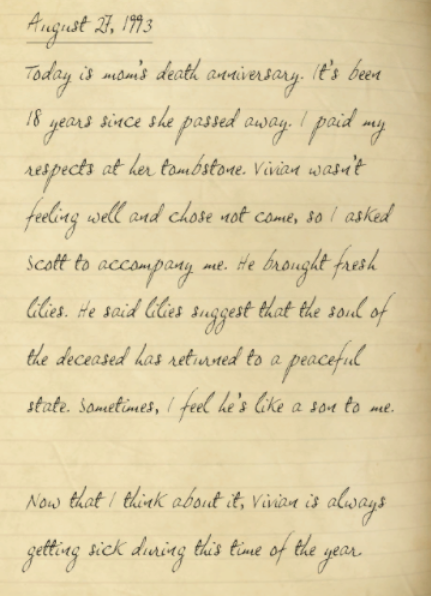 August 27, 1993
Today is mom's death anniversary. It's been
18 years since she passed away. I paid my
respects at her tombstone. Vivian wasn't
feeling well and chose not come, so I asked
Scott to accompany me. He brought fresh
lilies. He said lilies suggest that the soul of
the deceased has returned to a peaceful
state. Sometimes, I feel he's like a son to me.
Now that I think about it, Vivian is always
getting sick during this time of the year.